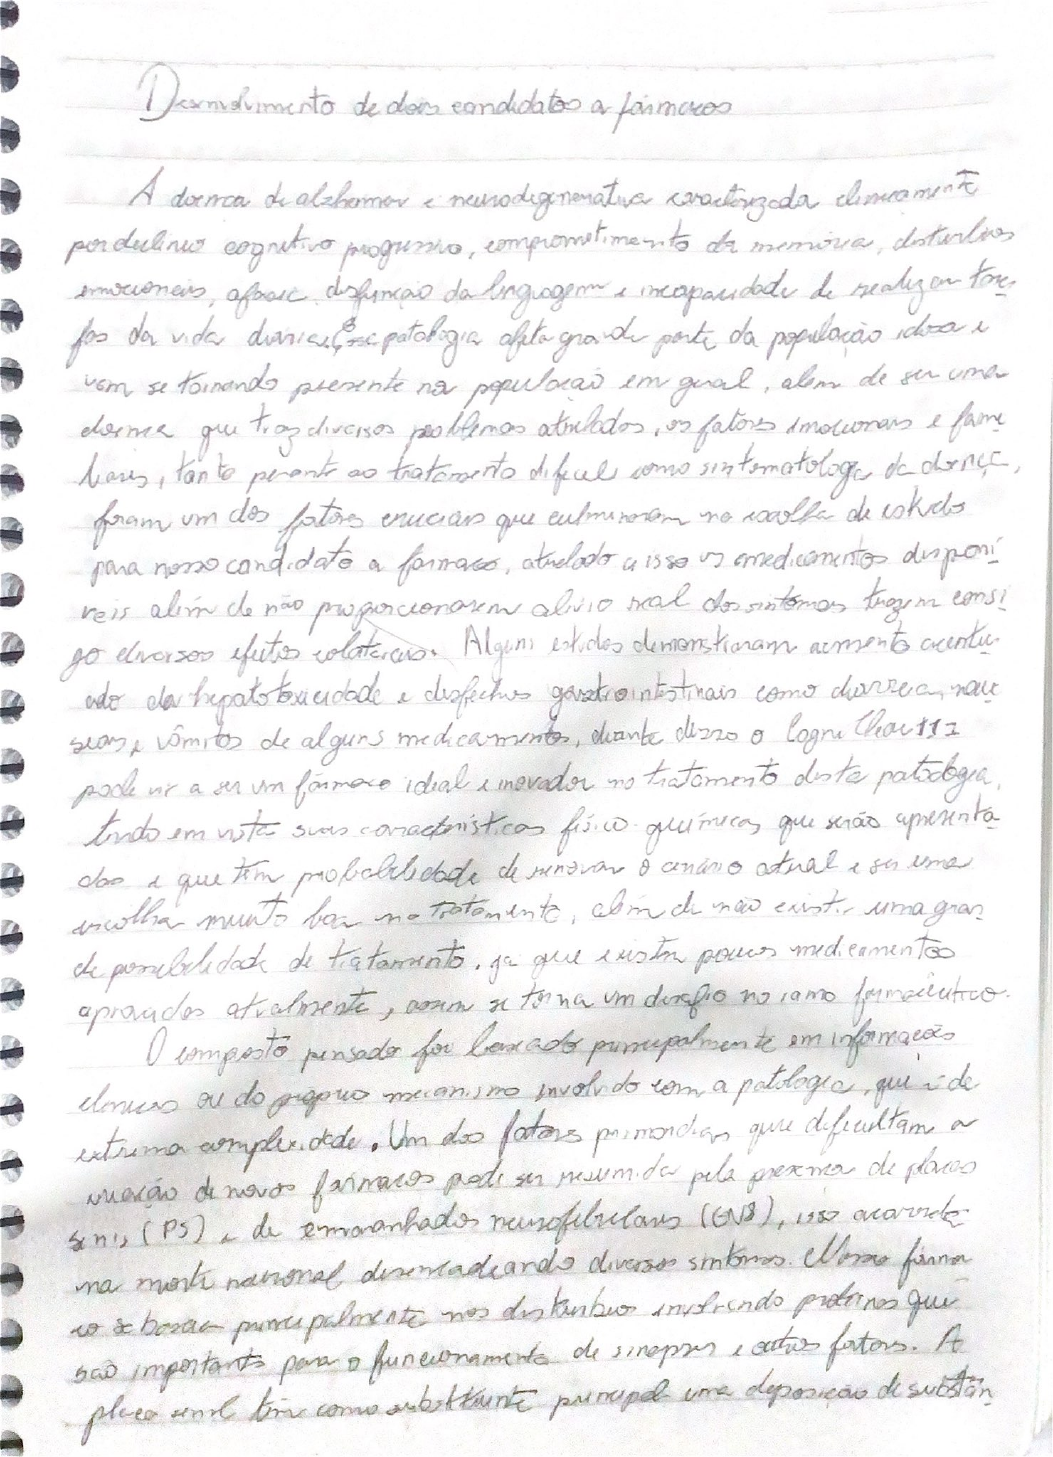 Desenvolvimento de dois candidatos a fármacos
A doença de alzheimer e neurodegenerativa caracterizada clinicamente
por declinio cognitivo progressivo, comprometimento da memória, disturbios
emocionais, afasia, disfunção da linguagem e incapacidade de realizar tare-
fas da vida diaria. Essa patologia afeta grande parte da população idosa e
vem se tornando presente na população em geral, alem de ser uma
doença que traz diversos problemas atrelados, os fatores emocionais e fami
liares, tanto perante ao tratamento dificil como sintomatologia da doença,
foram um dos fatores cruciais que culminaram na escolha de estudo
para nosso candidato a farmaco, atrelado a isso os medicamentos disponí
veis além de não proporcionarem alivio real dos sintomas trazem consi
go diversos efeitos colaterais. Alguns estudos demonstraram aumento acentu
ado da hepatotoxicidade e desfechos gastrointestinais como diarreia, nau
seas e vômitos de alguns medicamentos, diante disso o
pode vir a ser um fármaco ideal e inovador no tratamento desta patologia,
tendo em vista suas caracteristicas físico-químicas que serão apresenta
das e que têm probabilidade de renovar o cenário atual e ser uma
escolha muito boa no tratamento, além de não existir uma gran
de possibilidade de tratamento, ja que existem poucos medicamentos
aprovados atualmente, assim se torna um desafio no ramo farmacêutico.
O composto pensado foi baseado principalmente em informações
clinicas ou do próprio mecanismo involvido com a patologia, que é de
extrema complexidade. Um dos fatores primordiais que dificultam a
criação de novos fármacos pode ser resumida pela presença de placas
senis (PS) e de emaranhados neurofibrilares (ENB), isso acarreta
na morte neuronal desencadeando diversos sintomas. Nosso fárma
co se baseia principalmente nos distúrbios involvendo proteinas que
são importantes para o funcionamento de sinapses e outros fatores. A
placa senil têm como substituinte principal uma deposição de substân